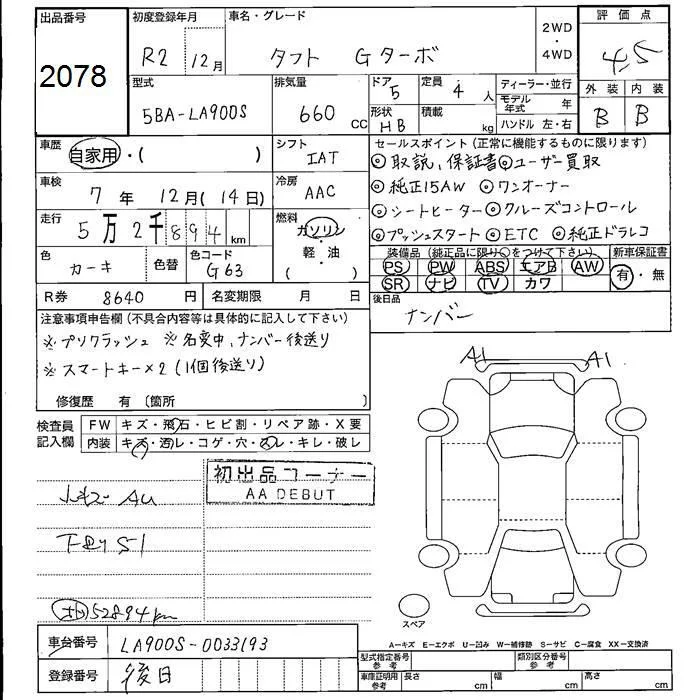 出品番号 初度登録年月 車名・グレード 2WD・4WD 評価点
2078 R2 12月 タフト Gターボ 4.5
型式 排気量 ドア 定員 ディーラー・並行 外装 内装
5BA-LA900S 660 CC 5 4人 モデル年式 年 B B
形状 積載 ハンドル 左・右
HB kg
車歴 自家用・( ) シフト IAT
セールスポイント(正常に機能するものに限ります)
◎取説、保証書◎ユーザー買取
◎純正15AW ◎ワンオーナー
◎シートヒーター◎クルーズコントロール
◎プッシュスタート◎ETC ◎純正ドラレコ
車検 7年 12月(14日) 冷房 AAC
走行 5万2千894km 燃料 ガソリン・軽・油( )
色 カーキ 色替 色コード G63
装備品(純正品に限り○をつけて下さい) 新車保証書
PS PW ABS エアB AW 有・無
SR ナビ TV カワ
R券 8640円 名変期限 月 日
後日品
ナンバー
注意事項申告欄(不具合内容等は具体的に記入して下さい)
※プリクラッシュ ※名変中、ナンバー後送り
※スマートキー×2(1個後送り)
修復歴 有〔箇所 〕
A1 A1
検査員記入欄 FW キズ・飛石・ヒビ割・リペア跡・X要
内装 キズ・汚レ・コゲ・穴・スレ・キレ・破レ
初出品コーナー
AA DEBUT
AU
下廻りS1
52894km
スペア
車台番号 LA900S-0033193
A−キズ E−エクボ U−凹み W−補修跡 S−サビ C−腐食 XX−交換済
登録番号 後日
型式指定番号 参考 類別区分番号 参考
車庫証明用 参考 長さ cm 幅 cm 高さ cm